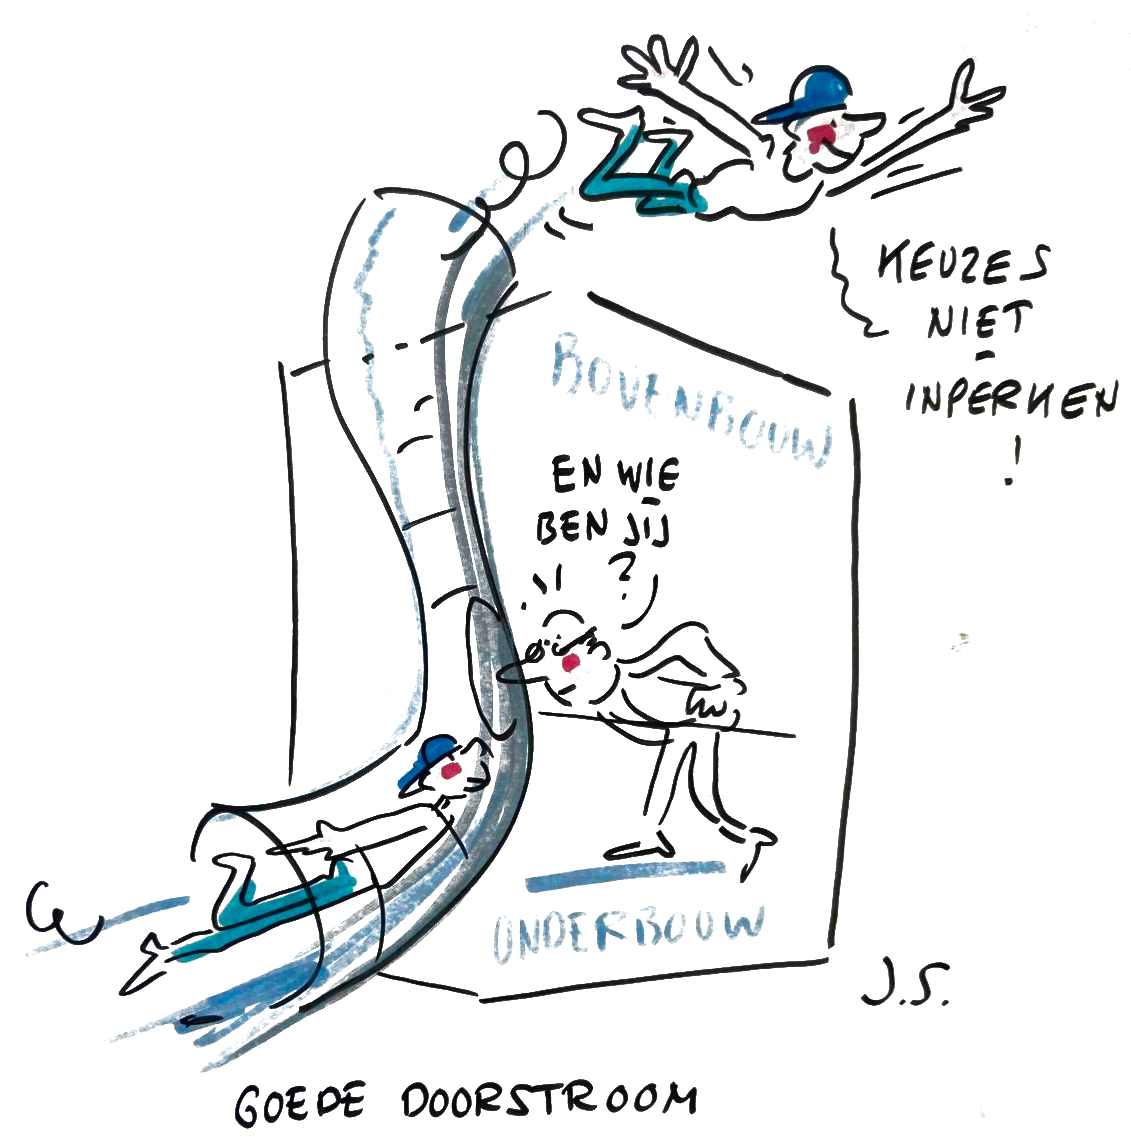 KEUZES
NIET
INPERKEN
!
BOVENBOUW
EN WIE
BEN JIJ
?
ONDERBOUW
J.S.
GOEDE DOORSTROOM